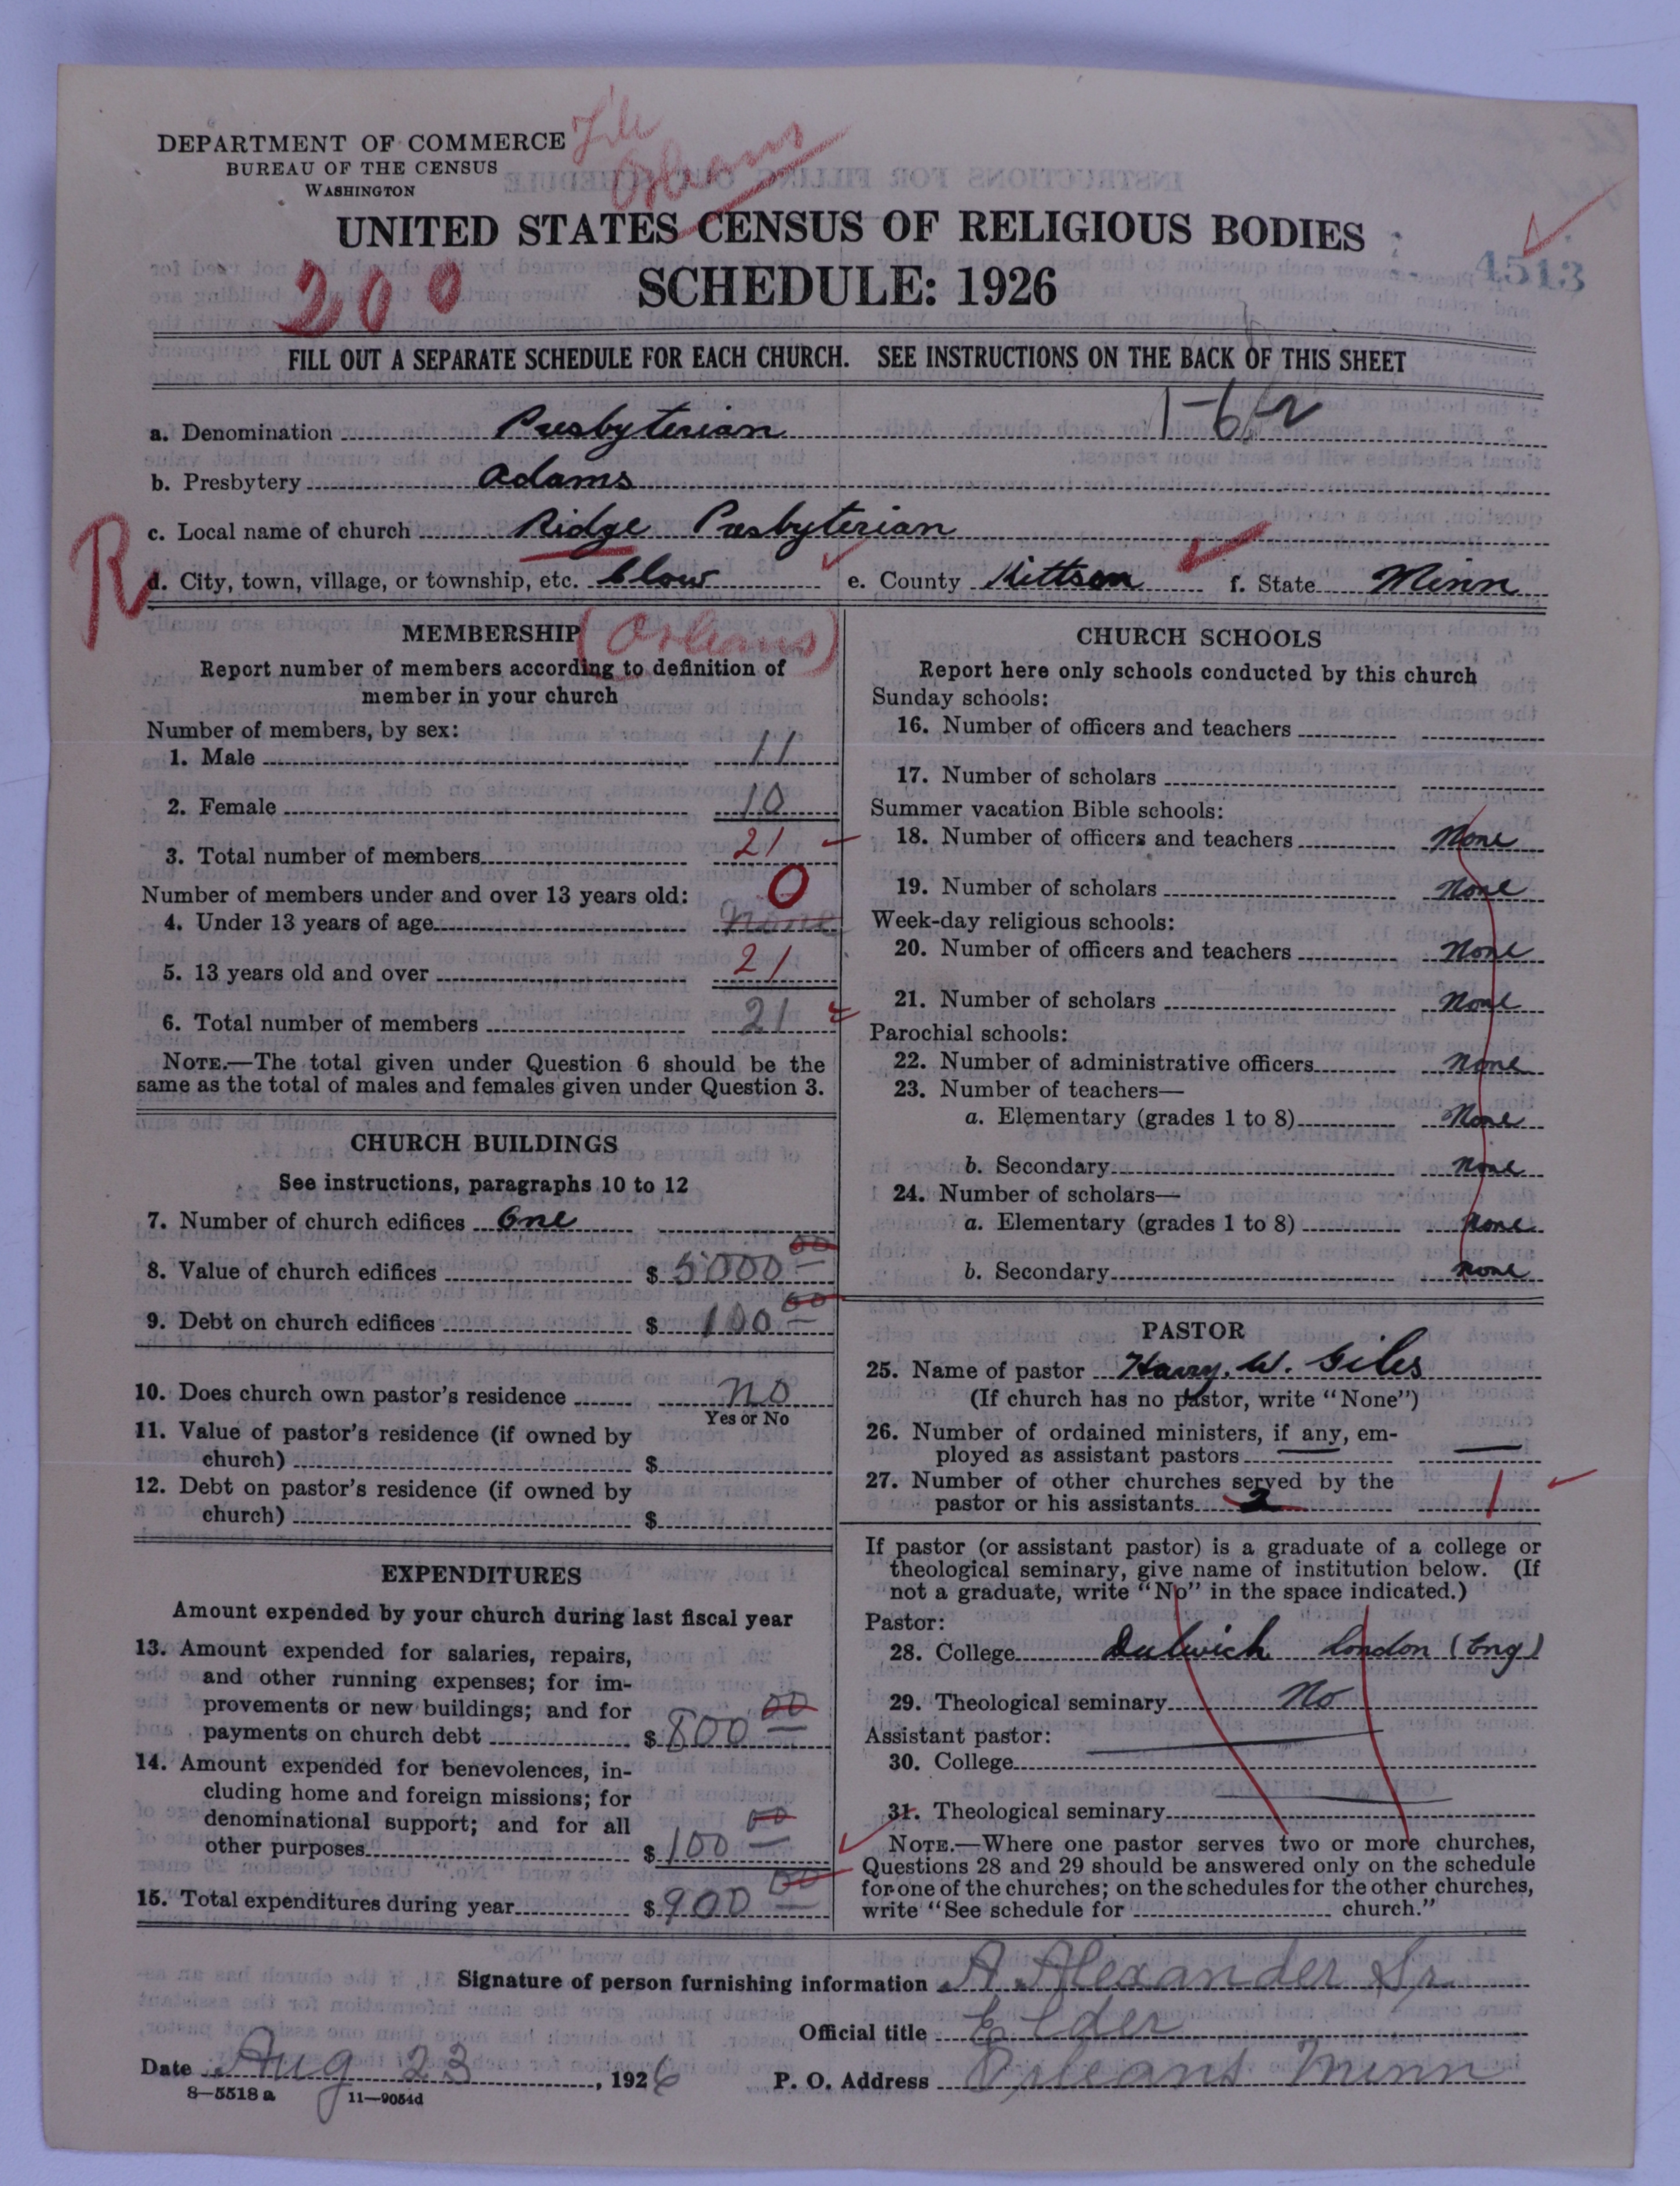 DEPARTMENT OF COMMERCE
BUREAU OF THE CENSUS
WASHINGTON
File
Orleans
UNITED STATES CENSUS OF RELIGIOUS BODIES
SCHEDULE: 1926
200
4513
FILL OUT A SEPARATE SCHEDULE FOR EACH CHURCH. SEE INSTRUCTIONS ON THE BACK OF THIS SHEET
a. Denomination Presbyterian
b. Presbytery Adams
c. Local name of church Ridge Presbyterian
R
d. City, town, village, or township, etc. Clow e. County Kittson f. State Minn
MEMBERSHIP (Orleans)
Report number of members according to definition of
member in your church
Number of members, by sex:
1. Male 11
2. Female 10
3. Total number of members 21
Number of members under and over 13 years old: 0
4. Under 13 years of age none
5. 13 years old and over 21
6. Total number of members 21
NOTE.—The total given under Question 6 should be the
same as the total of males and females given under Question 3.
CHURCH BUILDINGS
See instructions, paragraphs 10 to 12
7. Number of church edifices One
8. Value of church edifices $ 5000 00
9. Debt on church edifices $ 100 00
10. Does church own pastor's residence no
Yes or No
11. Value of pastor's residence (if owned by
church) $
12. Debt on pastor's residence (if owned by
church) $
EXPENDITURES
Amount expended by your church during last fiscal year
13. Amount expended for salaries, repairs,
and other running expenses; for im-
provements or new buildings; and for
payments on church debt $ 800 00
14. Amount expended for benevolences, in-
cluding home and foreign missions; for
denominational support; and for all
other purposes $ 100 00
15. Total expenditures during year $ 900 00
CHURCH SCHOOLS
Report here only schools conducted by this church
Sunday schools:
16. Number of officers and teachers
17. Number of scholars
Summer vacation Bible schools:
18. Number of officers and teachers None
19. Number of scholars None
Week-day religious schools:
20. Number of officers and teachers None
21. Number of scholars None
Parochial schools:
22. Number of administrative officers None
23. Number of teachers—
a. Elementary (grades 1 to 8) None
b. Secondary None
24. Number of scholars—
a. Elementary (grades 1 to 8) None
b. Secondary None
PASTOR
25. Name of pastor Harry. W. Giles
(If church has no pastor, write "None")
26. Number of ordained ministers, if any, em-
ployed as assistant pastors
27. Number of other churches served by the
pastor or his assistants 2 1
If pastor (or assistant pastor) is a graduate of a college or
theological seminary, give name of institution below. (If
not a graduate, write "No" in the space indicated.)
Pastor:
28. College Dulwich London (Eng)
29. Theological seminary No
Assistant pastor:
30. College
31. Theological seminary
NOTE.—Where one pastor serves two or more churches,
Questions 28 and 29 should be answered only on the schedule
for one of the churches; on the schedules for the other churches,
write "See schedule for church."
Signature of person furnishing information A. Alexander Sr.
Official title Elder
Date Aug 23, 1926 P. O. Address Orleans Minn
8—5518 a 11—9054d